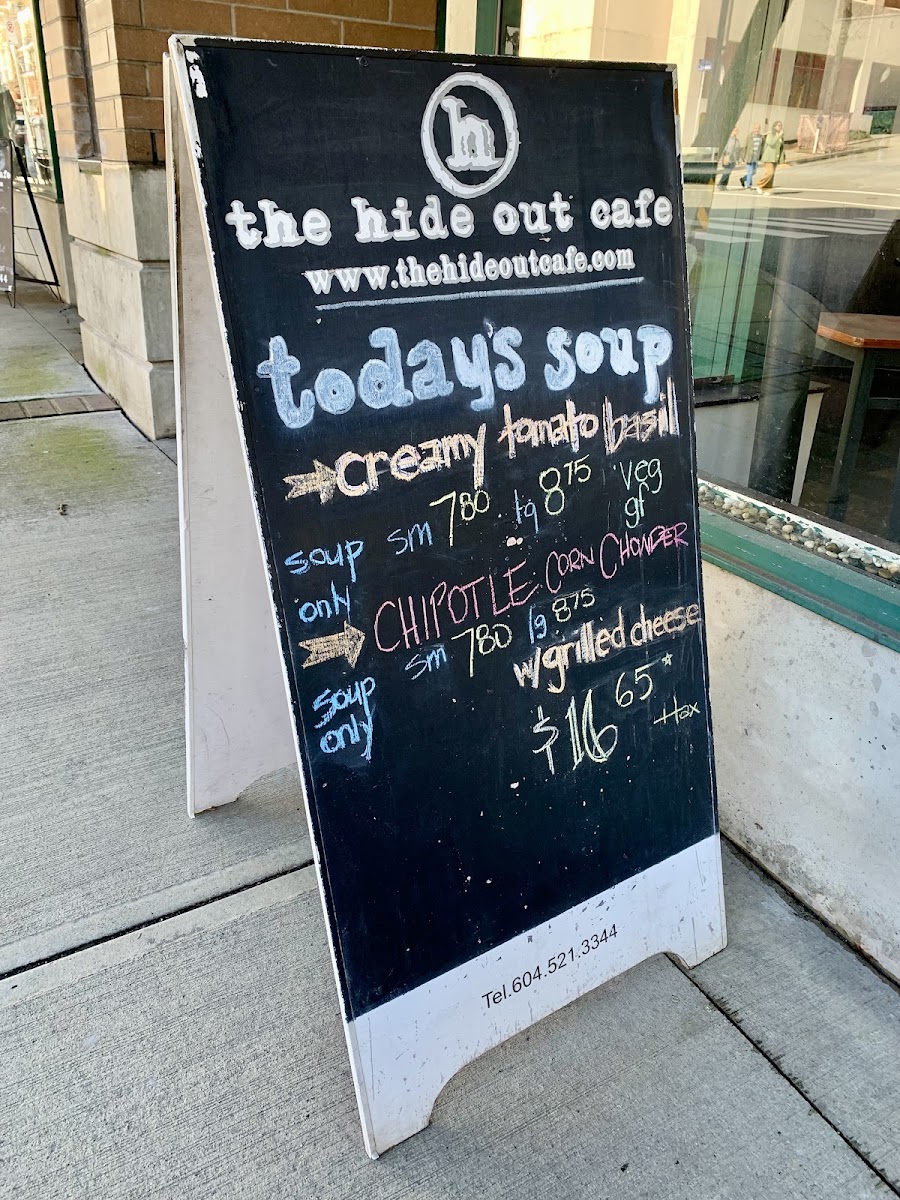 h
the hide out cafe
www.thehideoutcafe.com
today's soup
creamy tomato basil
soup only sm 7.80 lg 8.75 veg gf
CHIPOTLE CORN CHOWDER
soup only sm 7.80 lg 8.75
w/grilled cheese
$16.65* +tax
Tel.604.521.3344